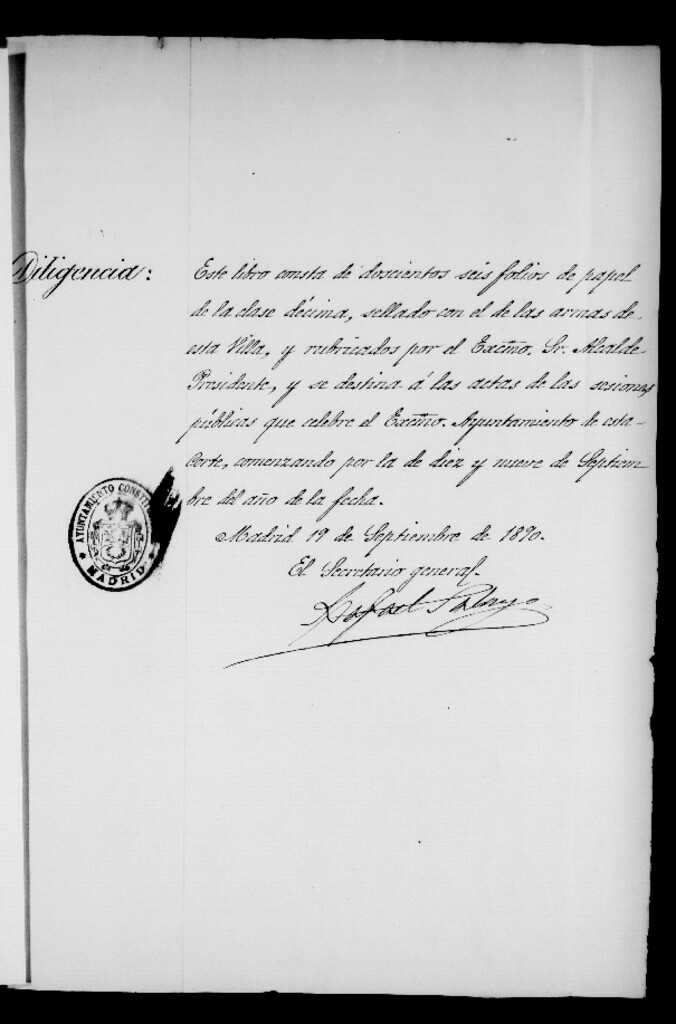 Diligencia:
Este libro consta de doscientos seis folios de papel
de la clase décima, sellado con el de las armas de
esta Villa, y rubricados por el Excmo. Sr. Alcalde-
Presidente, y se destina á las actas de las sesiones
públicas que celebre el Excmo. Ayuntamiento de esta
Corte, comenzando por la de diez y nueve de Septiem-
bre del año de la fecha.
Madrid 19 de Septiembre de 1890.
El Secretario general.
Rafael Salaya
AYUNTAMIENTO CONSTI
MADRID